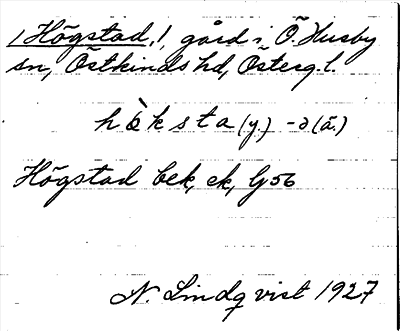 /Högstad,!, gård i Ö. Husby
sn, Östkinds hd, Österg. l.
hö̀ksta (y.) -ə (ä.)
Högstad bek, ek, Gj 56
N. Lindqvist 1927